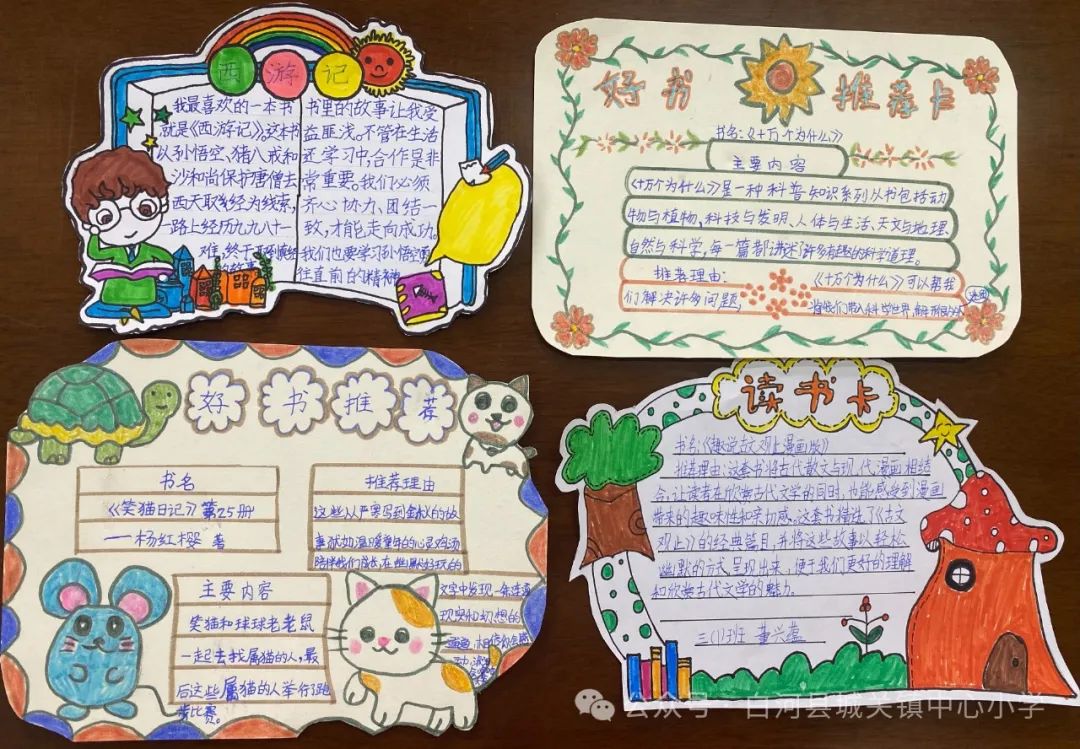 西游记
我最喜欢的一本书
就是《西游记》,这本书
以孙悟空、猪八戒和
沙和尚保护唐僧去
西天取经为线索,
一路上经历九九八十一
难,终于取到真经
的故事
书里的故事让我受
益匪浅。不管在生活
还学习中,合作是非
常重要。我们必须
齐心协力、团结一
致,才能走向成功。
我们也要学习孙悟空勇
往直前的精神
好书推荐卡
书名:《十万个为什么》
主要内容
《十万个为什么》是一种科普知识系列丛书包括动
物与植物、科技与发明、人体与生活、天文与地理、
自然与科学,每一篇都讲述了许多有趣的科学道理。
推荐理由:《十万个为什么》可以帮我
们解决许多问题,
着我们带入科学世界,解开
迷团
好书推荐
书名
《笑猫日记》第25册
——杨红樱 著
推荐理由
这些从严寒写到金秋的故
事犹如温暖童年的心灵鸡汤
陪伴我们成长,在幽默好玩的
文字中发现一条连通
现实和幻想的
主要内容
笑猫和球球老老鼠
一起去找属猫的人,最
后这些属猫的人举行了跑
步比赛。
读书卡
书名:《趣说古文观止漫画版》
推荐理由:这套书将古代散文与现代漫画相结
合,让读者在欣赏古代文学的同时,也能感受到漫画
带来的趣味性和亲切感。这套书精选了《古文
观止》的经典篇目,并将这些故事以轻松
幽默的方式呈现出来,便于我们更好的理解
和欣赏古代文学的魅力。
三(1)班 董兴蕴
公众号·白河县城关镇中心小学